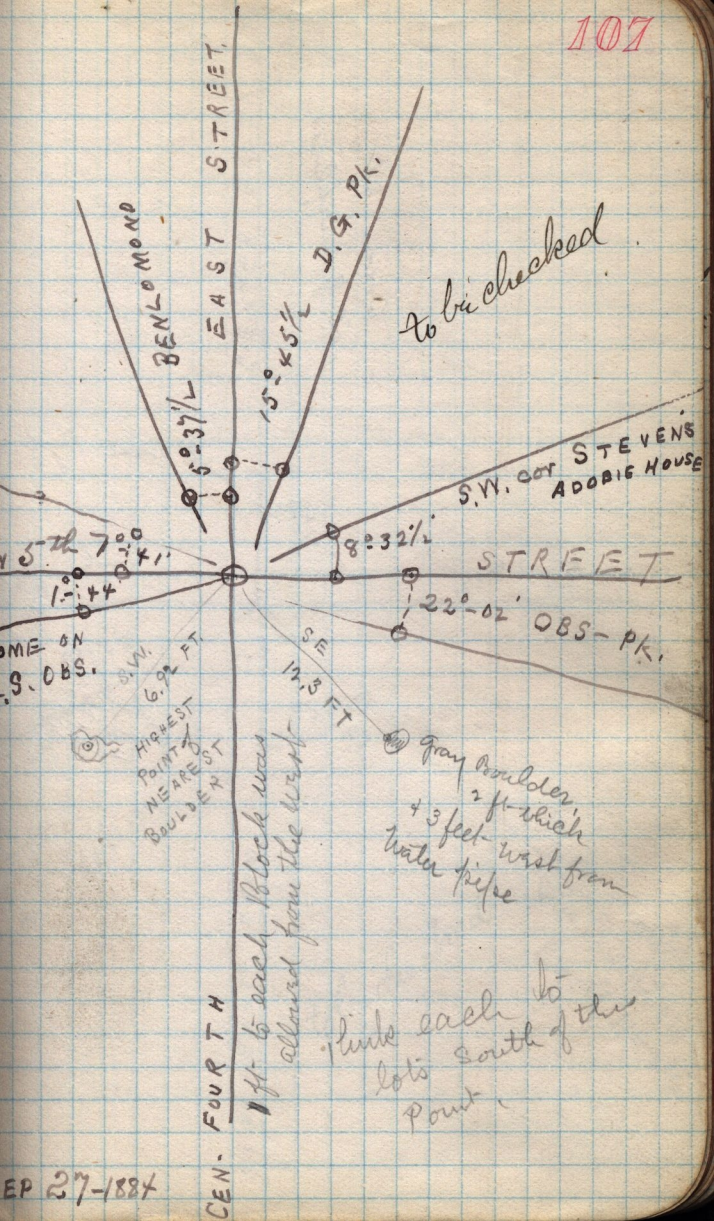 107
EAST STREET
BENLOMOND
5°-37½
D. G. Pk.
15°-45½
to be checked
S.W. cor STEVENS
ADOBIE HOUSE
8°32½'
STREET
5th 7°
41'
1°-44
22°-02' OBS-PK.
OME ON
.S. OBS.
S.W.
6.92 FT.
HIGHEST
POINT of
NEAREST
BOULDER
SE
12.3 FT
Gray Boulder,
2 ft which
+ 3 feet west from
Water pipe
1 ft to each Block was
allowed from the West
CEN- FOURTH
Think each to
lots South of this
Point.
EP 27-1884